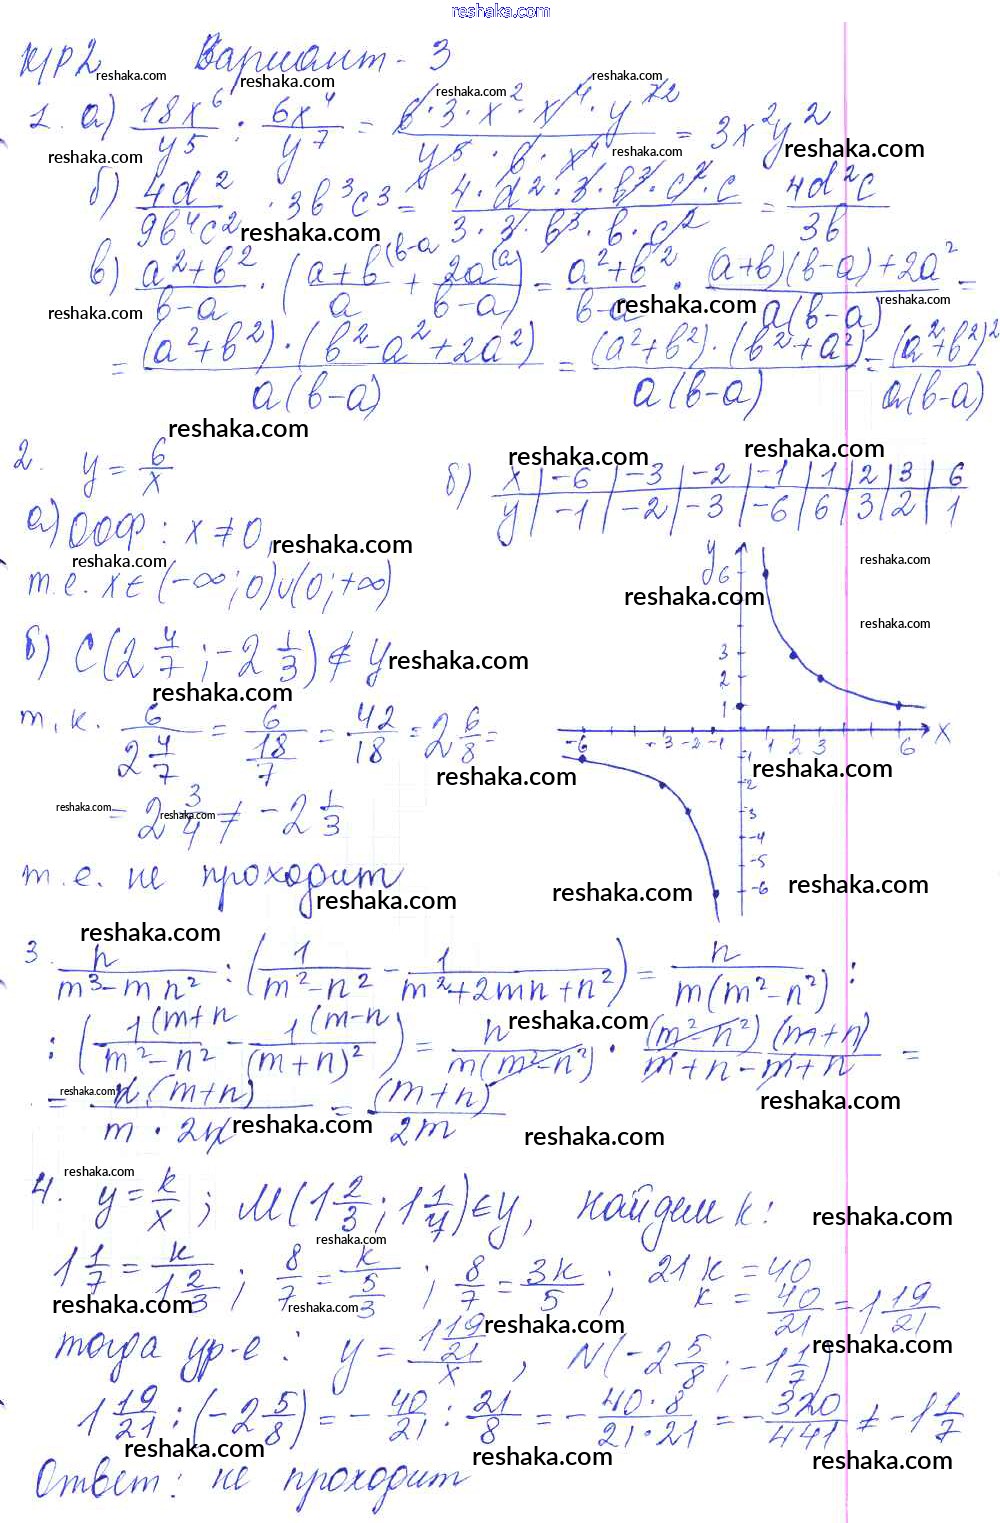 reshaka.com
КР2 Вариант - 3
1. а) 18x^6/y^5 : 6x^4/y^7 = 6·3·x^2·x^4·y^72/y^5·6·x^4 = 3x^2y^2
б) 4d^2/9b^4c^2 · 3b^3c^3 = 4·d^2·3·b^3·c^2·c/3·3·b^3·b·c^2 = 4d^2c/3b
в) a^2+b^2/b-a · (a+b(b-a/a + 2a(a/b-a) = a^2+b^2/b-a · (a+b)(b-a)+2a^2/a(b-a) =
= (a^2+b^2)·(b^2-a^2+2a^2)/a(b-a) = (a^2+b^2)·(b^2+a^2)/a(b-a) = (a^2+b^2)^2/a(b-a)
2. y = 6/x
б) x | -6 | -3 | -2 | -1 | 1 | 2 | 3 | 6
y | -1 | -2 | -3 | -6 | 6 | 3 | 2 | 1
а) ООФ: x ≠ 0,
т.е. x ∈ (-∞; 0)∪(0; +∞)
б) C(2 4/7; -2 1/3) ∉ y
т.к. 6/2 4/7 = 6/18/7 = 42/18 = 2 6/8 =
= 2 3/4 ≠ -2 1/3
т.е. не проходит
y 6 3 2 1
-6 -3 -2 -1 1 2 3 6 x
-1 -2 -3 -4 -5 -6
3. n/m^3-mn^2 : (1/m^2-n^2 - 1/m^2+2mn+n^2) = n/m(m^2-n^2) :
: (1(m+n/m^2-n^2 - 1(m-n/(m+n)^2) = n/m(m^2-n^2) · (m^2-n^2)(m+n)/m+n-m+n =
= n(m+n)/m·2n = (m+n)/2m
4. y = k/x; M(1 2/3; 1 1/7) ∈ y, найдем k:
1 1/7 = k/1 2/3; 8/7 = k/5/3; 8/7 = 3k/5; 21k = 40
k = 40/21 = 1 19/21
тогда ур-е: y = 1 19/21/x, N(-2 5/8; -1 1/7)
1 19/21 : (-2 5/8) = -40/21 : 21/8 = -40·8/21·21 = -320/441 ≠ -1 1/7
Ответ: не проходит